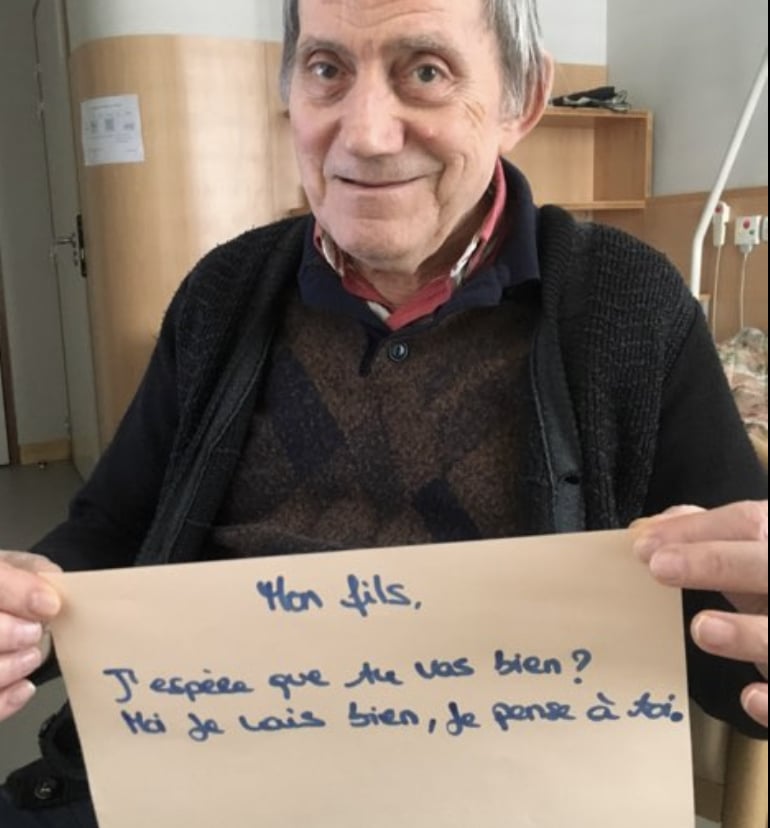 Mon fils,
J'espère que tu vas bien?
Moi je vais bien, je pense à toi.